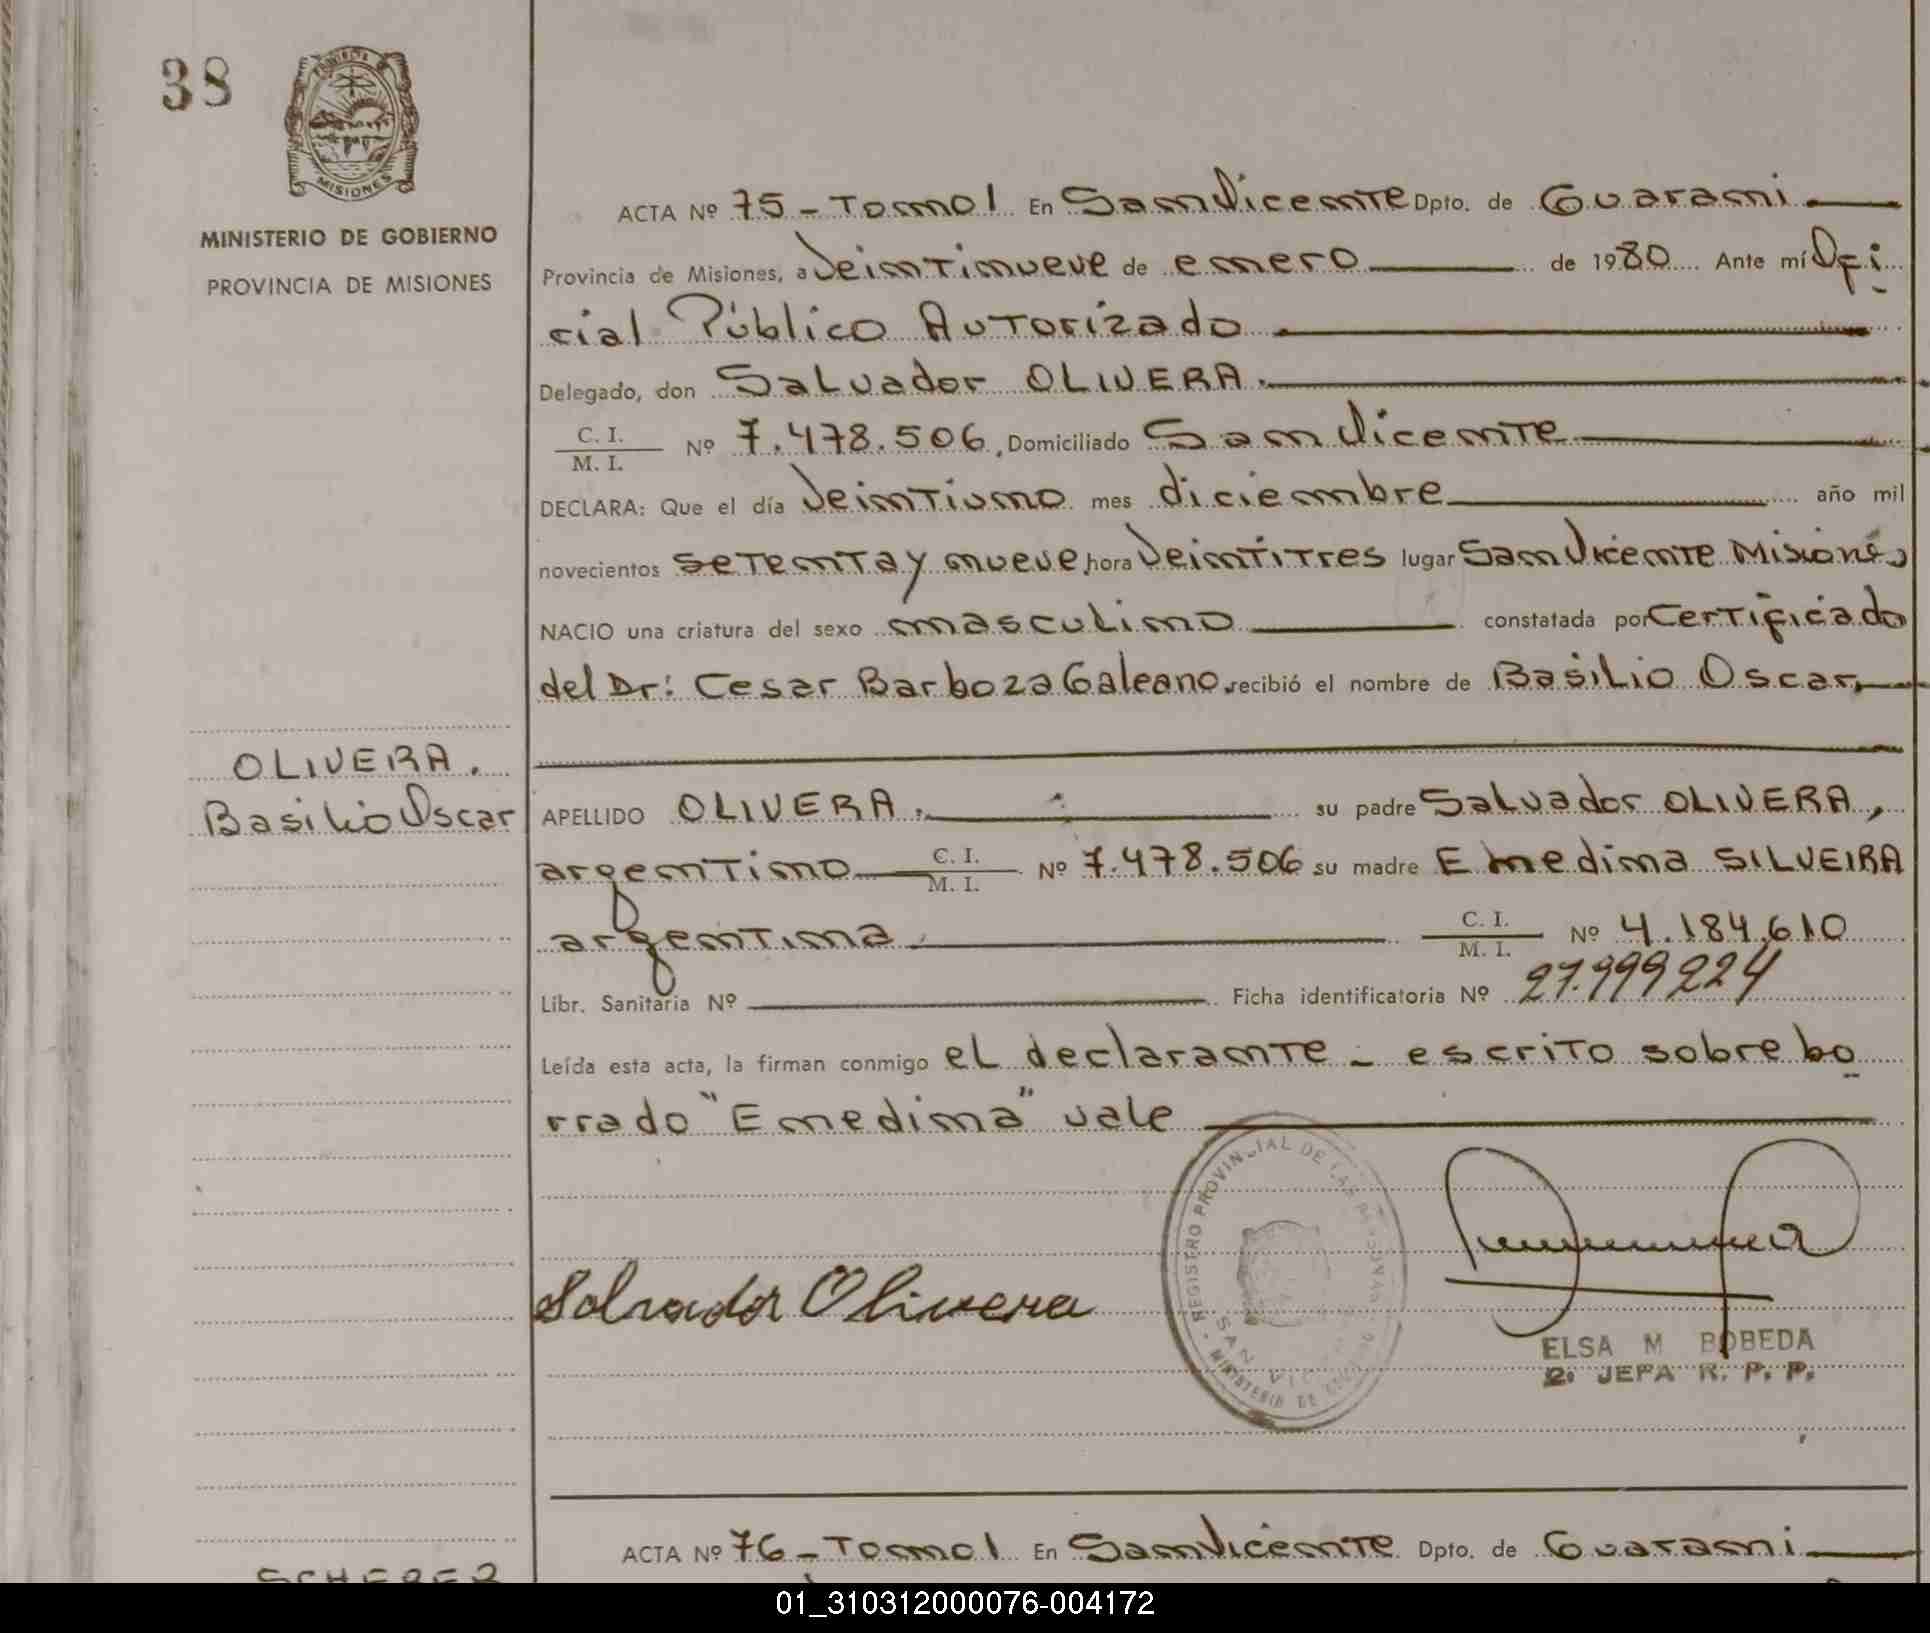 38
PROVINCIA DE
MISIONES
MINISTERIO DE GOBIERNO
PROVINCIA DE MISIONES
ACTA Nº 75 - Tomo 1 En San Vicente Dpto. de Guarani
Provincia de Misiones, a Veintinueve de enero de 1980 Ante mí Ofi
cial Público Autorizado
Delegado, don Salvador OLIVERA.
C. I.
M. I. Nº 7.478.506, Domiciliado San Vicente
DECLARA: Que el día Veintiuno mes diciembre año mil
novecientos setenta y nueve, hora Veintitres lugar San Vicente Misiones
NACIO una criatura del sexo masculino constatada por Certificado
del Dr: Cesar Barboza Galeano, recibió el nombre de Basilio Oscar,
OLIVERA.
Basilio Oscar
APELLIDO OLIVERA. su padre Salvador OLIVERA,
argentino C. I.
M. I. Nº 7.478.506 su madre Emedina SILVEIRA
argentina. C. I.
M. I. Nº 4.184.610
Libr. Sanitaria Nº Ficha identificatoria Nº 27.999224
Leída esta acta, la firman conmigo el declarante - escrito sobre bo
rrado "Emedina" vale
REGISTRO PROVINCIAL DE LAS PERSONAS
SAN VICENTE
MINISTERIO DE GOBIERNO
Salvador Olivera
ELSA M BOBEDA
2º JEFA R. P. P.
ACTA Nº 76 - Tomo 1 En San Vicente Dpto. de Guarani
SCHERER
01_310312000076-004172